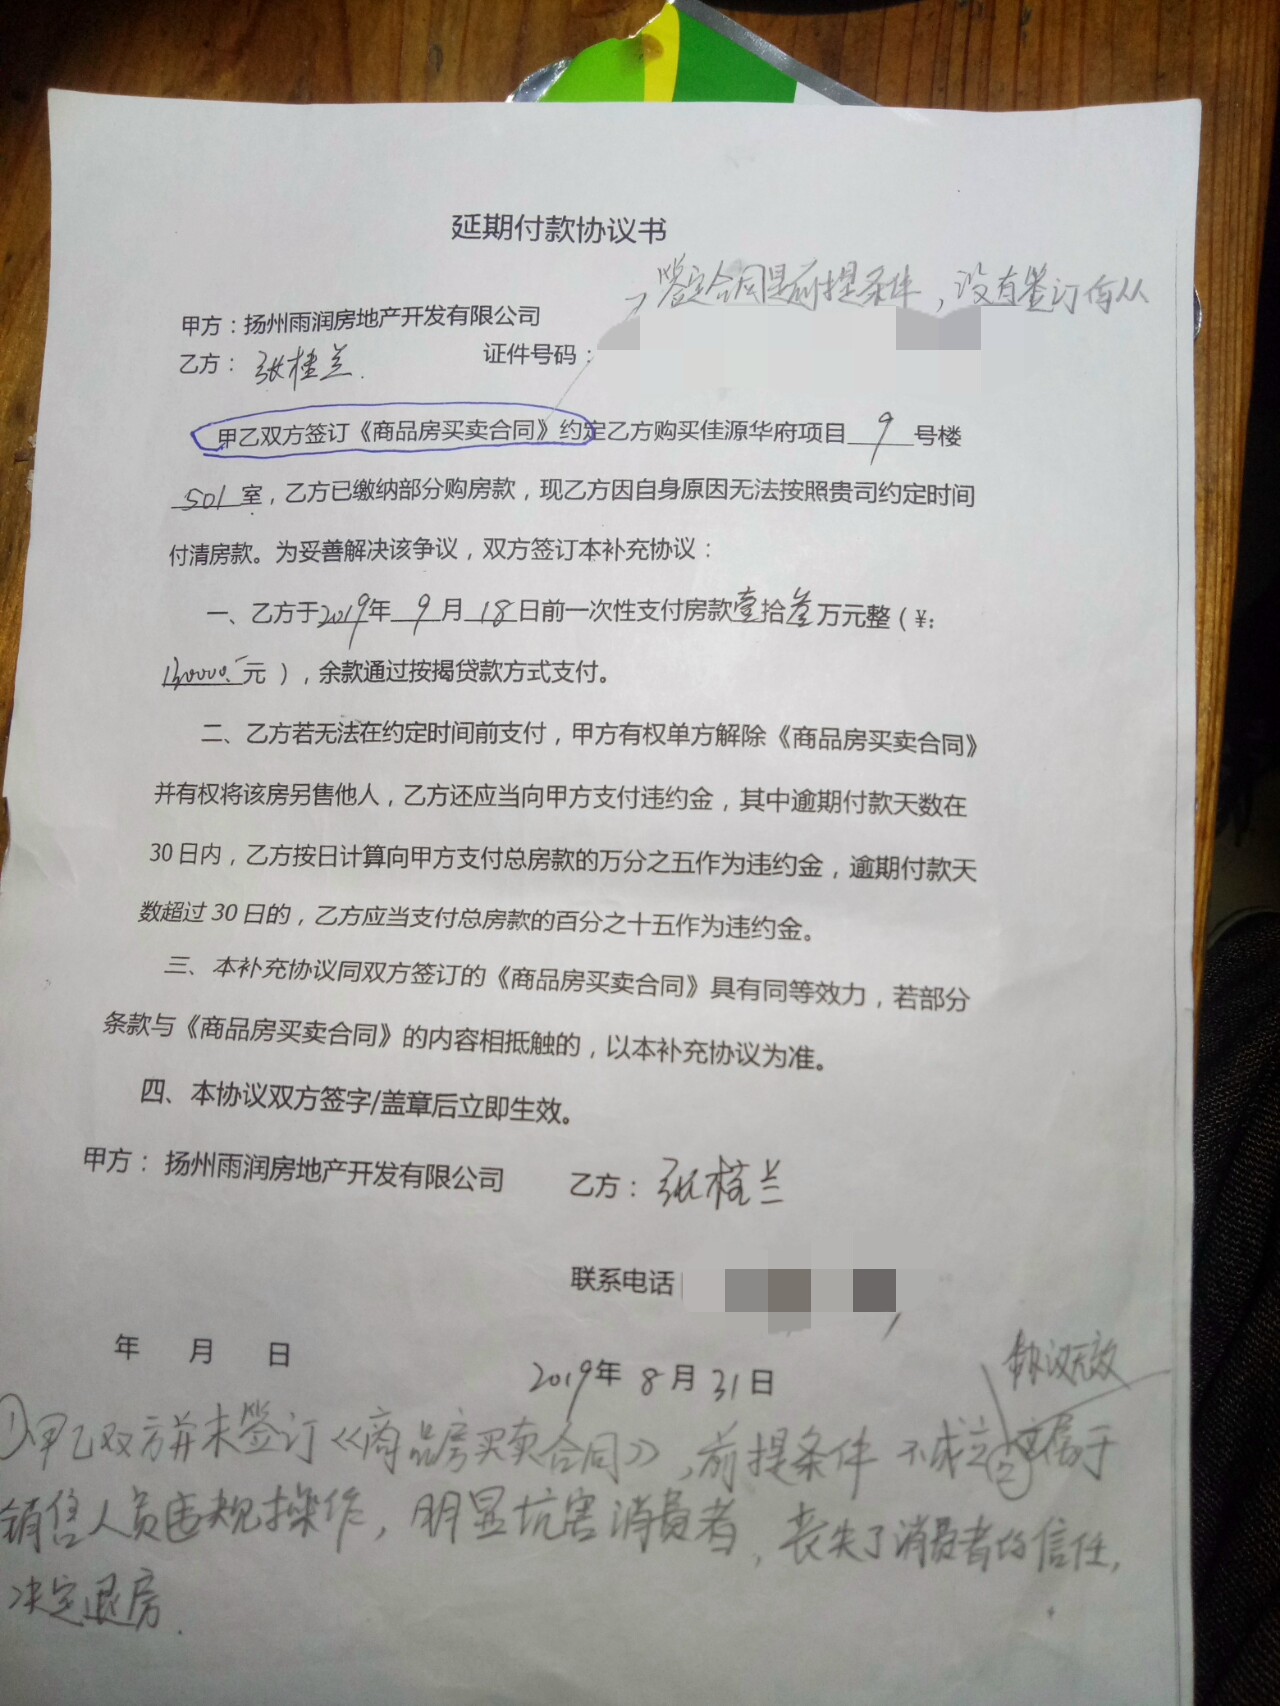 延期付款协议书
签定合同是前提条件，没有签订何从
甲方：扬州雨润房地产开发有限公司
乙方：张桂兰.　证件号码：
甲乙双方签订《商品房买卖合同》约定乙方购买佳源华府项目9号楼
501室，乙方已缴纳部分购房款，现乙方因自身原因无法按照贵司约定时间
付清房款。为妥善解决该争议，双方签订本补充协议：
一、乙方于2019年9月18日前一次性支付房款壹拾叁万元整（¥:
130000.元），余款通过按揭贷款方式支付。
二、乙方若无法在约定时间前支付，甲方有权单方解除《商品房买卖合同》
并有权将该房另售他人，乙方还应当向甲方支付违约金，其中逾期付款天数在
30日内，乙方按日计算向甲方支付总房款的万分之五作为违约金，逾期付款天
数超过30日的，乙方应当支付总房款的百分之十五作为违约金。
三、本补充协议同双方签订的《商品房买卖合同》具有同等效力，若部分
条款与《商品房买卖合同》的内容相抵触的，以本补充协议为准。
四、本协议双方签字/盖章后立即生效。
甲方：扬州雨润房地产开发有限公司　乙方：张桂兰
联系电话
年　月　日　2019年8月31日
协议无效
①甲乙双方并未签订《商品房买卖合同》，前提条件不成立，②属于
销售人员违规操作，明显坑害消费者，丧失了消费者的信任，
决定退房.